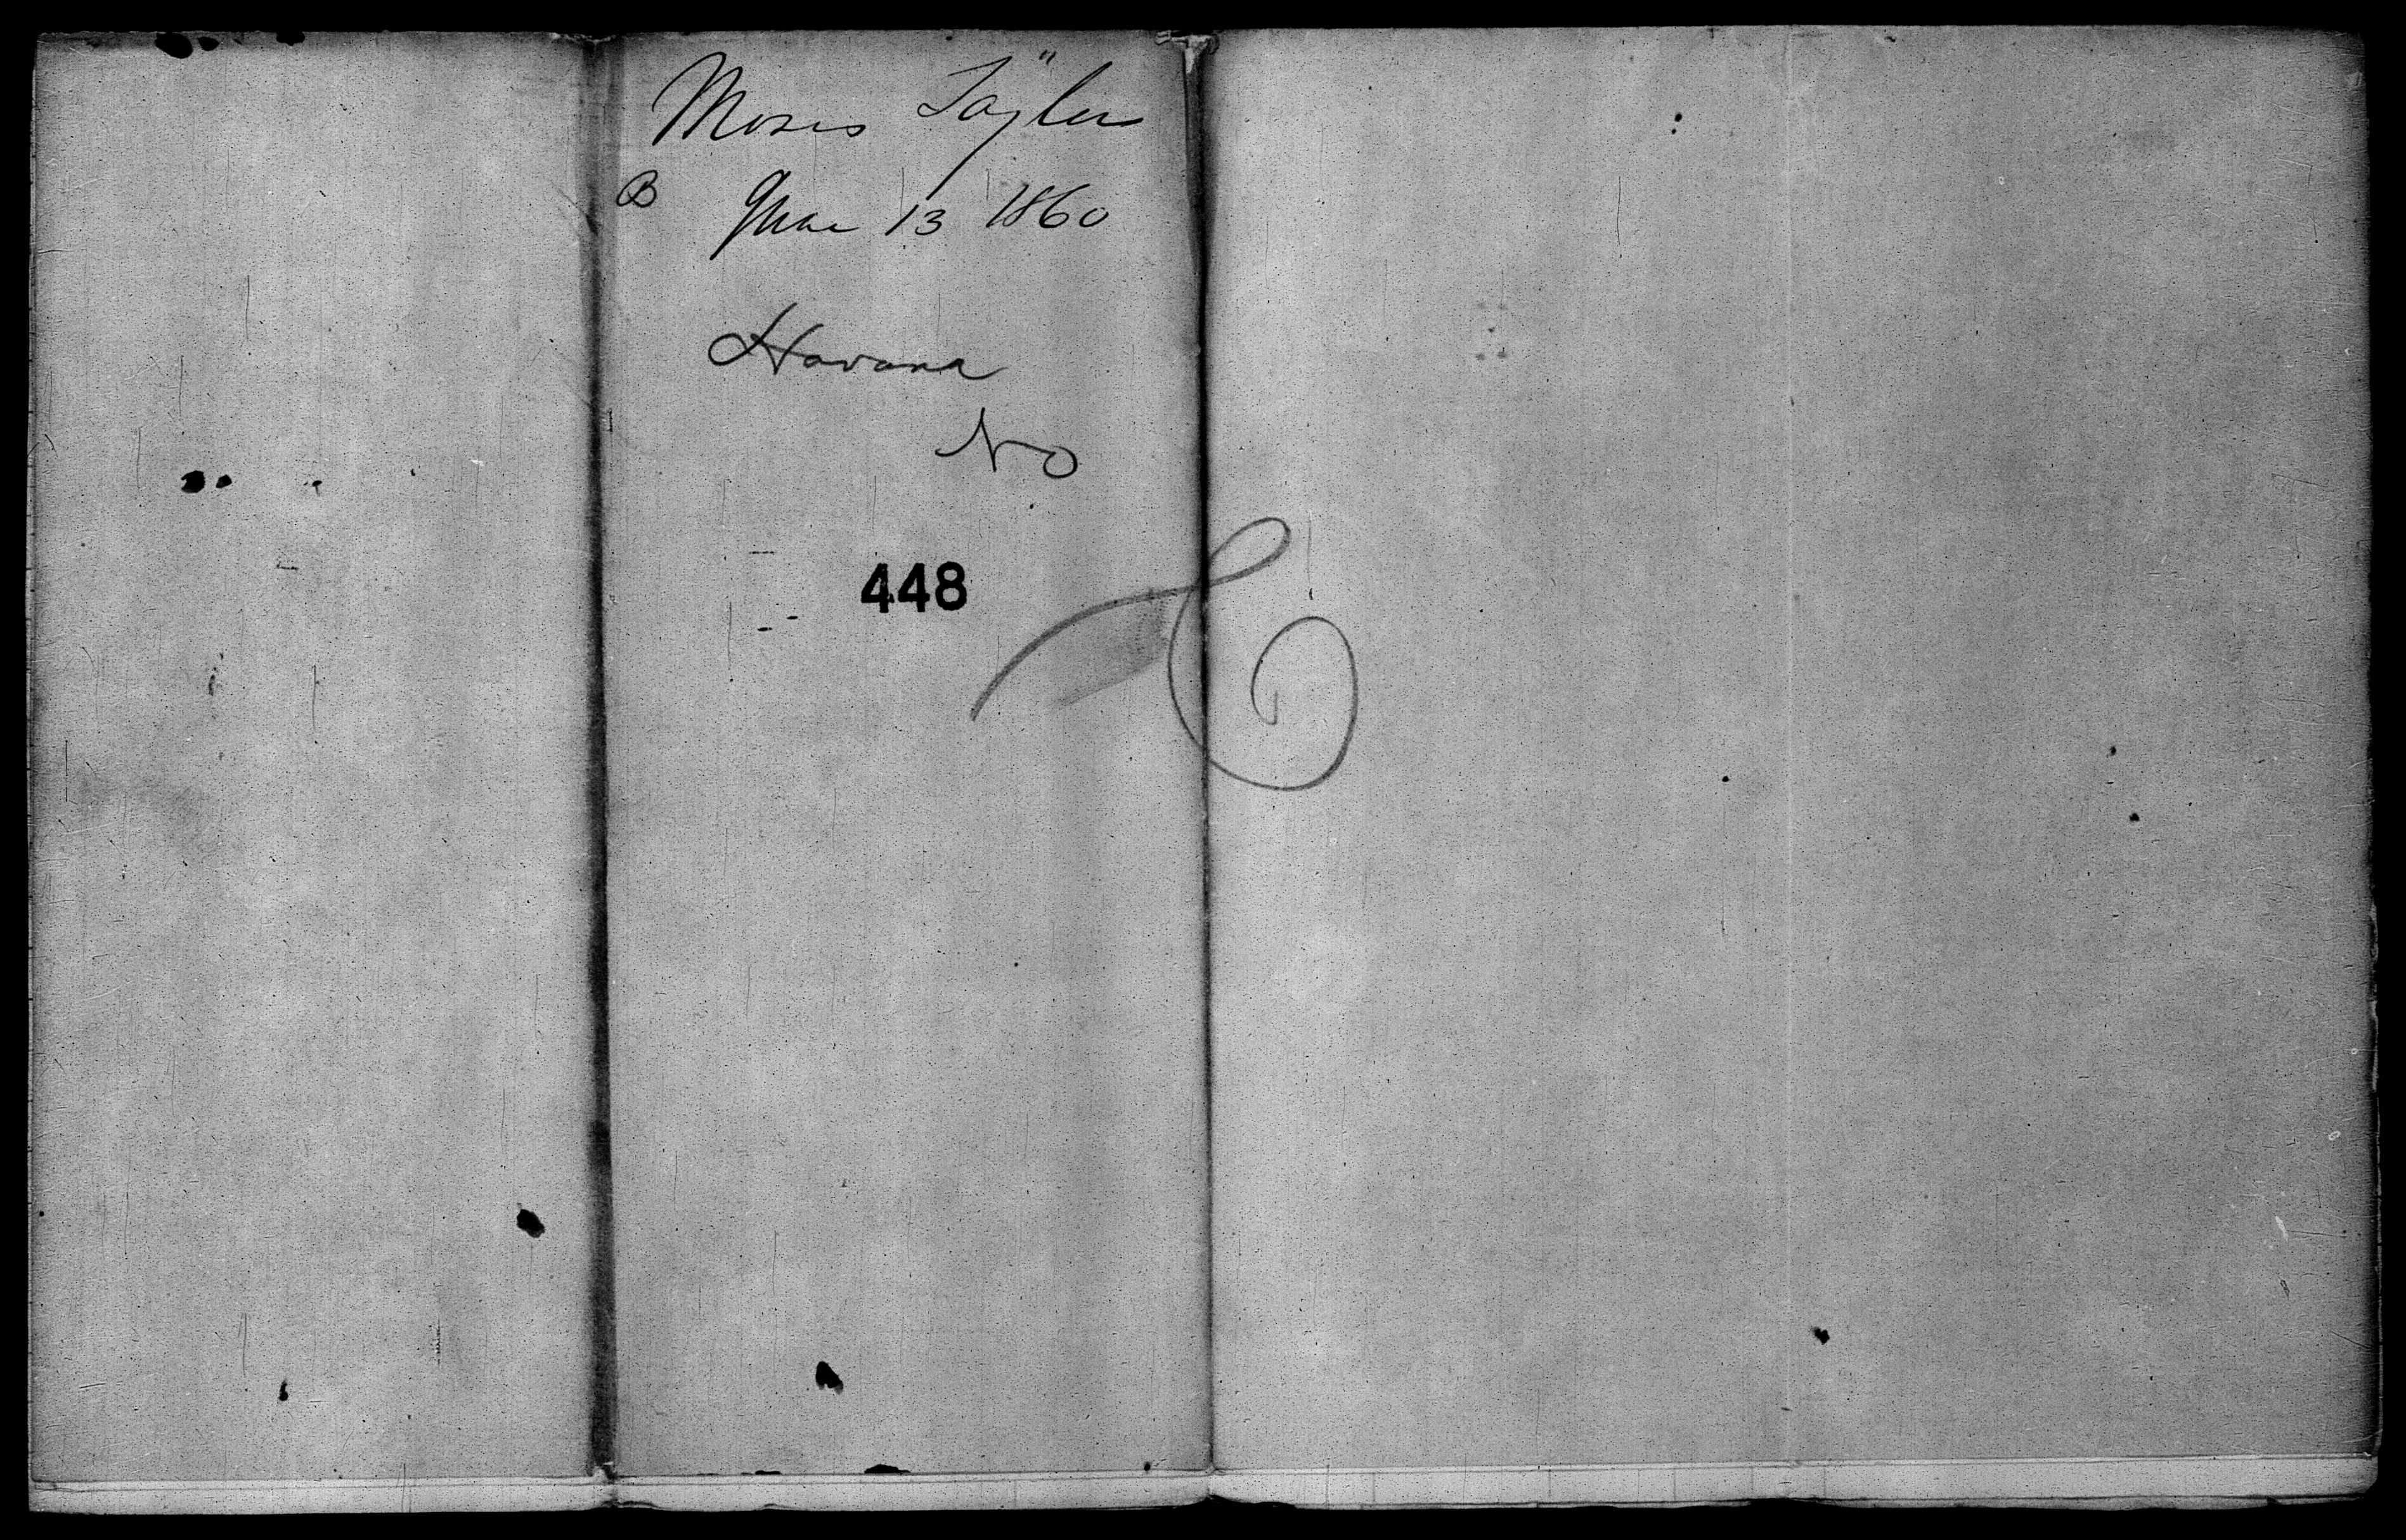 Moses Taylor
B June 13 1860
Havana
No
448